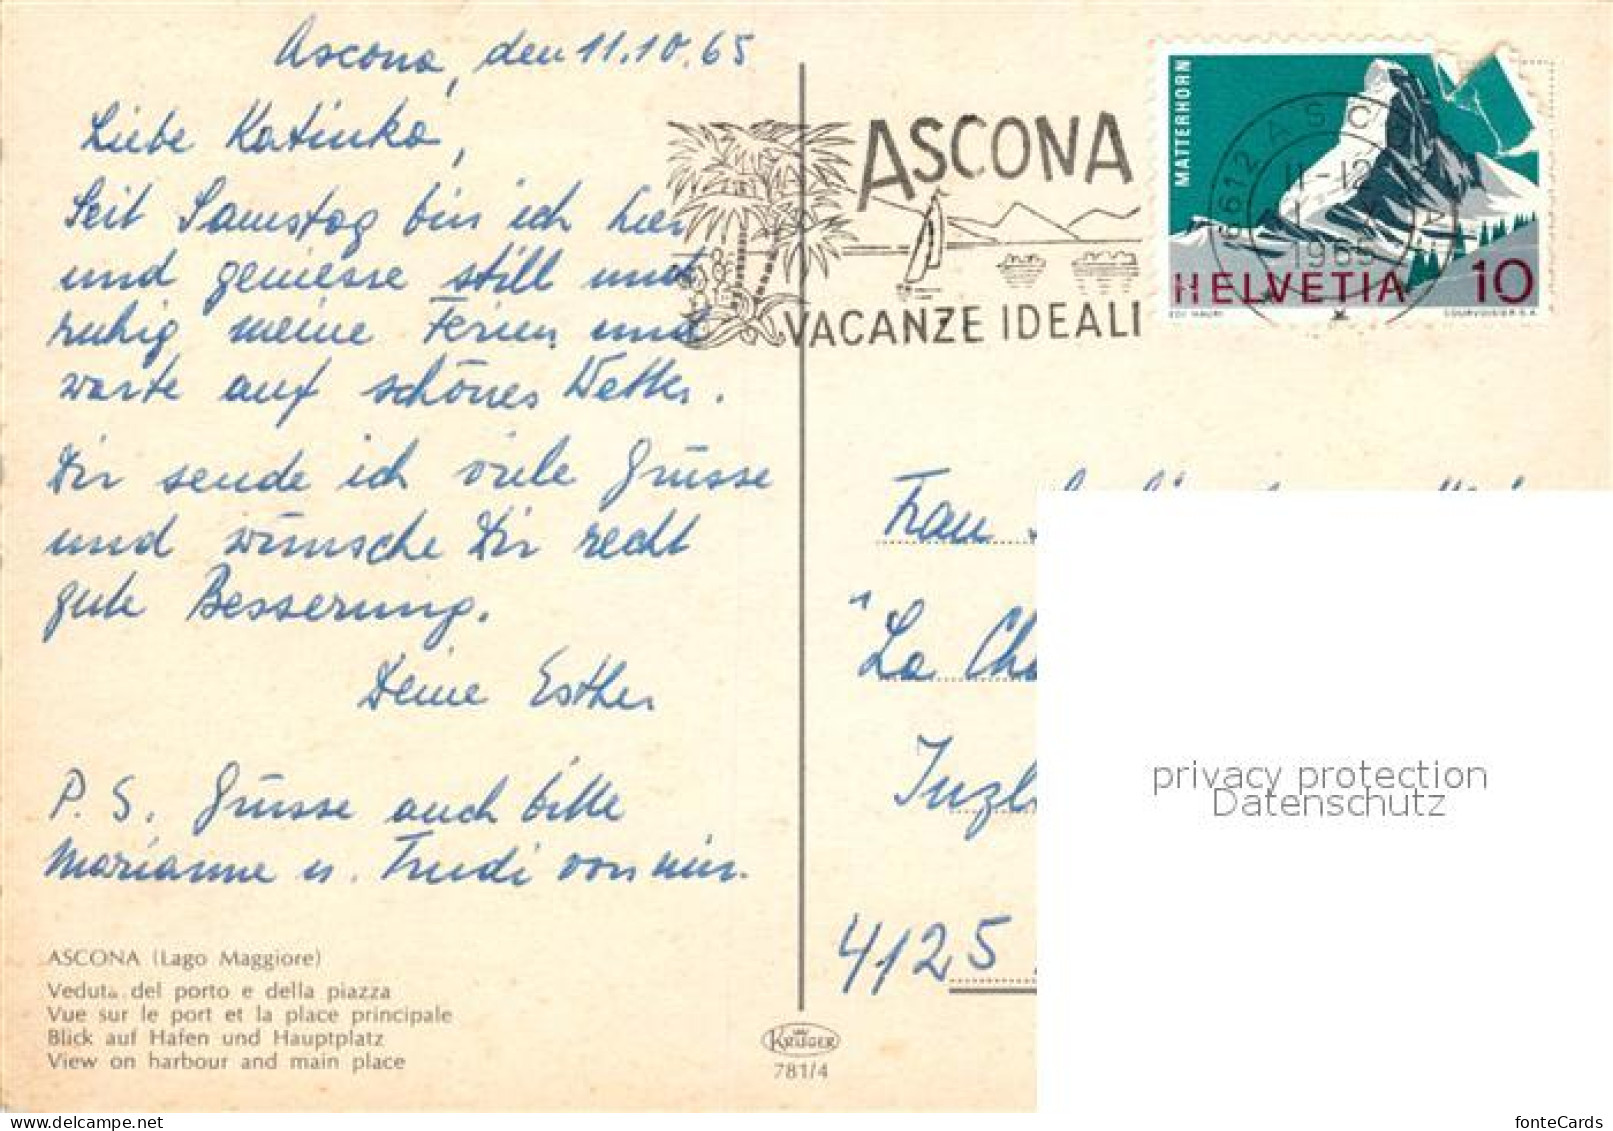 Ascona, den 11.10.65
Liebe Katinka,
Seit Samstag bin ich hier
und geniesse still und
ruhig meine Ferien und
warte auf schönes Wetter.
Dir sende ich viele Grüsse
und wünsche Dir recht
gute Besserung.
Deine Esther
P.S. Grüsse auch bitte
Marianne u. Trudi von mir.
ASCONA (Lago Maggiore)
Veduta del porto e della piazza
Vue sur le port et la place principale
Blick auf Hafen und Hauptplatz
View on harbour and main place
KRÜGER
781/4
ASCONA
VACANZE IDEALI
MATTERHORN
6612 ASCONA
11-12
1965
HELVETIA 10
EDI HAURI
COURVOISIER S.A.
Frau
"La
4125
privacy protection
Datenschutz
fonteCards